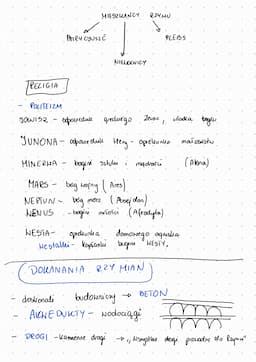 MIESZKAŃCY RZYMU
PATRYCJUSZE PLEBS
NIEWOLNICY
RELIGIA
- POLITEIZM
JOWISZ - odpowiednik greckiego Zeusa, władca bogów
JUNONA - odpowiednik Hery - opiekunka małżeństw
MINERWA - bogini sztuki i mądrości (Atena)
MARS - bóg wojny (Ares)
NEPTUN - bóg mórz (Posejdon)
WENUS - bogini miłości (Afrodyta)
WESTA - opiekunka domowego ogniska
Westalki - kapłanki bogini WESTY.
DOKONANIA RZYMIAN
- doskonali budowniczy → BETON
- AKWEDUKTY - wodociągi
- DROGI - kamienne drogi → „Wszystkie drogi prowadzą do Rzymu"